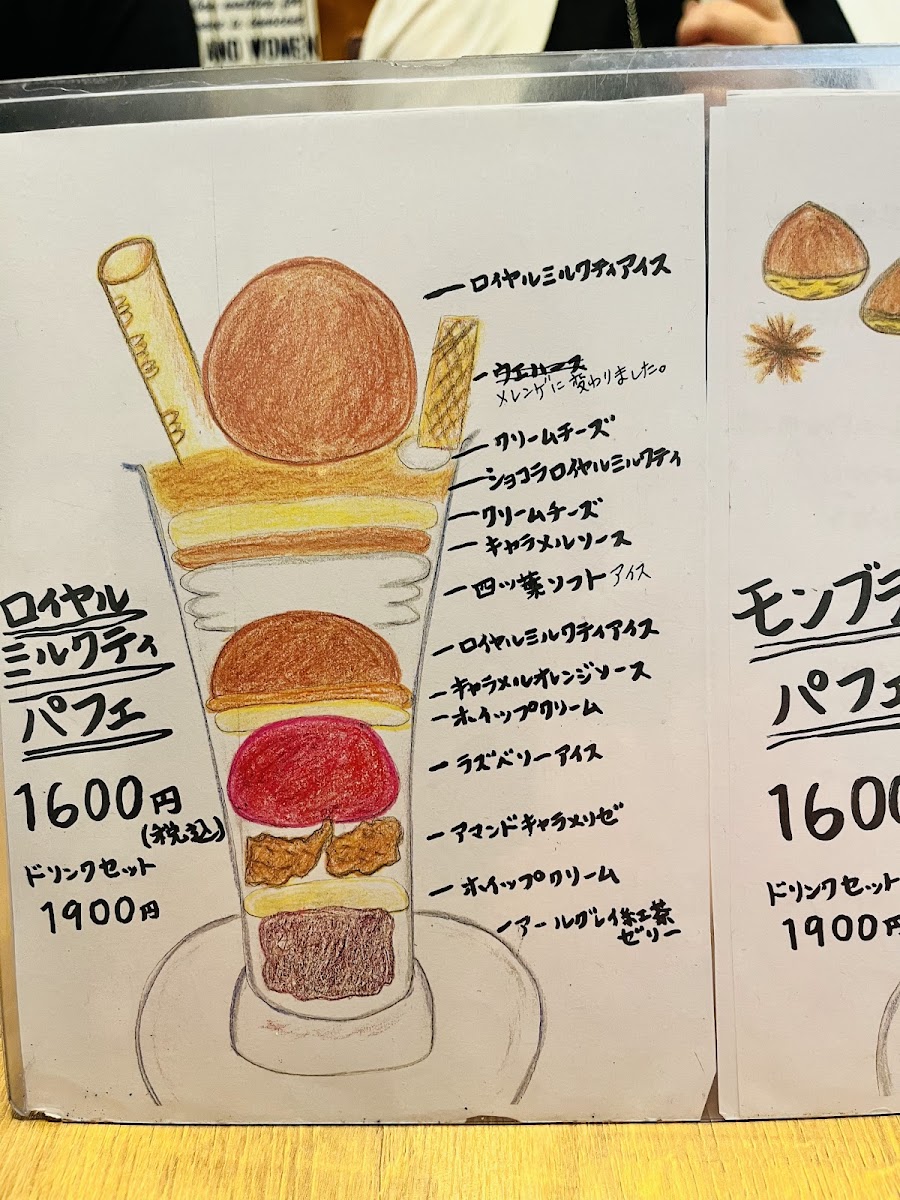 AND WOMEN
ロイヤルミルクティアイス
ウエハース
メレンゲに変わりました。
クリームチーズ
ショコラロイヤルミルクティ
クリームチーズ
キャラメルソース
四ツ葉ソフトアイス
ロイヤルミルクティアイス
キャラメルオレンジソース
ホイップクリーム
ラズベリーアイス
アマンドキャラメリゼ
ホイップクリーム
アールグレイ紅茶
ゼリー
ロイヤル
ミルクティ
パフェ
1600円
(税込)
ドリンクセット
1900円
モンブラ
パフェ
1600
ドリンクセット
1900円